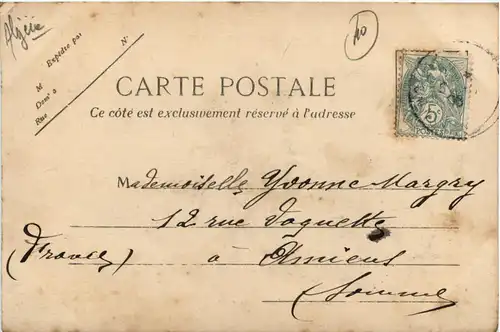 Algérie
Expédié par
M
N°
Dem^t à
Rue
10
CARTE POSTALE
Ce côté est exclusivement réservé à l'adresse
5
POSTES
Mademoiselle Yvonne Margry
12 rue Vaquette
(France) à Amiens
Somme